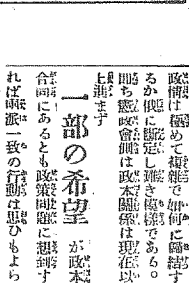 政情は極めて複雑で如何に歸結す
るか俄に斷定し難き模樣である。
即ち憲政會側は政本關係は現在以
上進まず
一部の希望 が政本
合同にあるとも政策問題に想到す
れば兩派一致の行動は思ひもよら